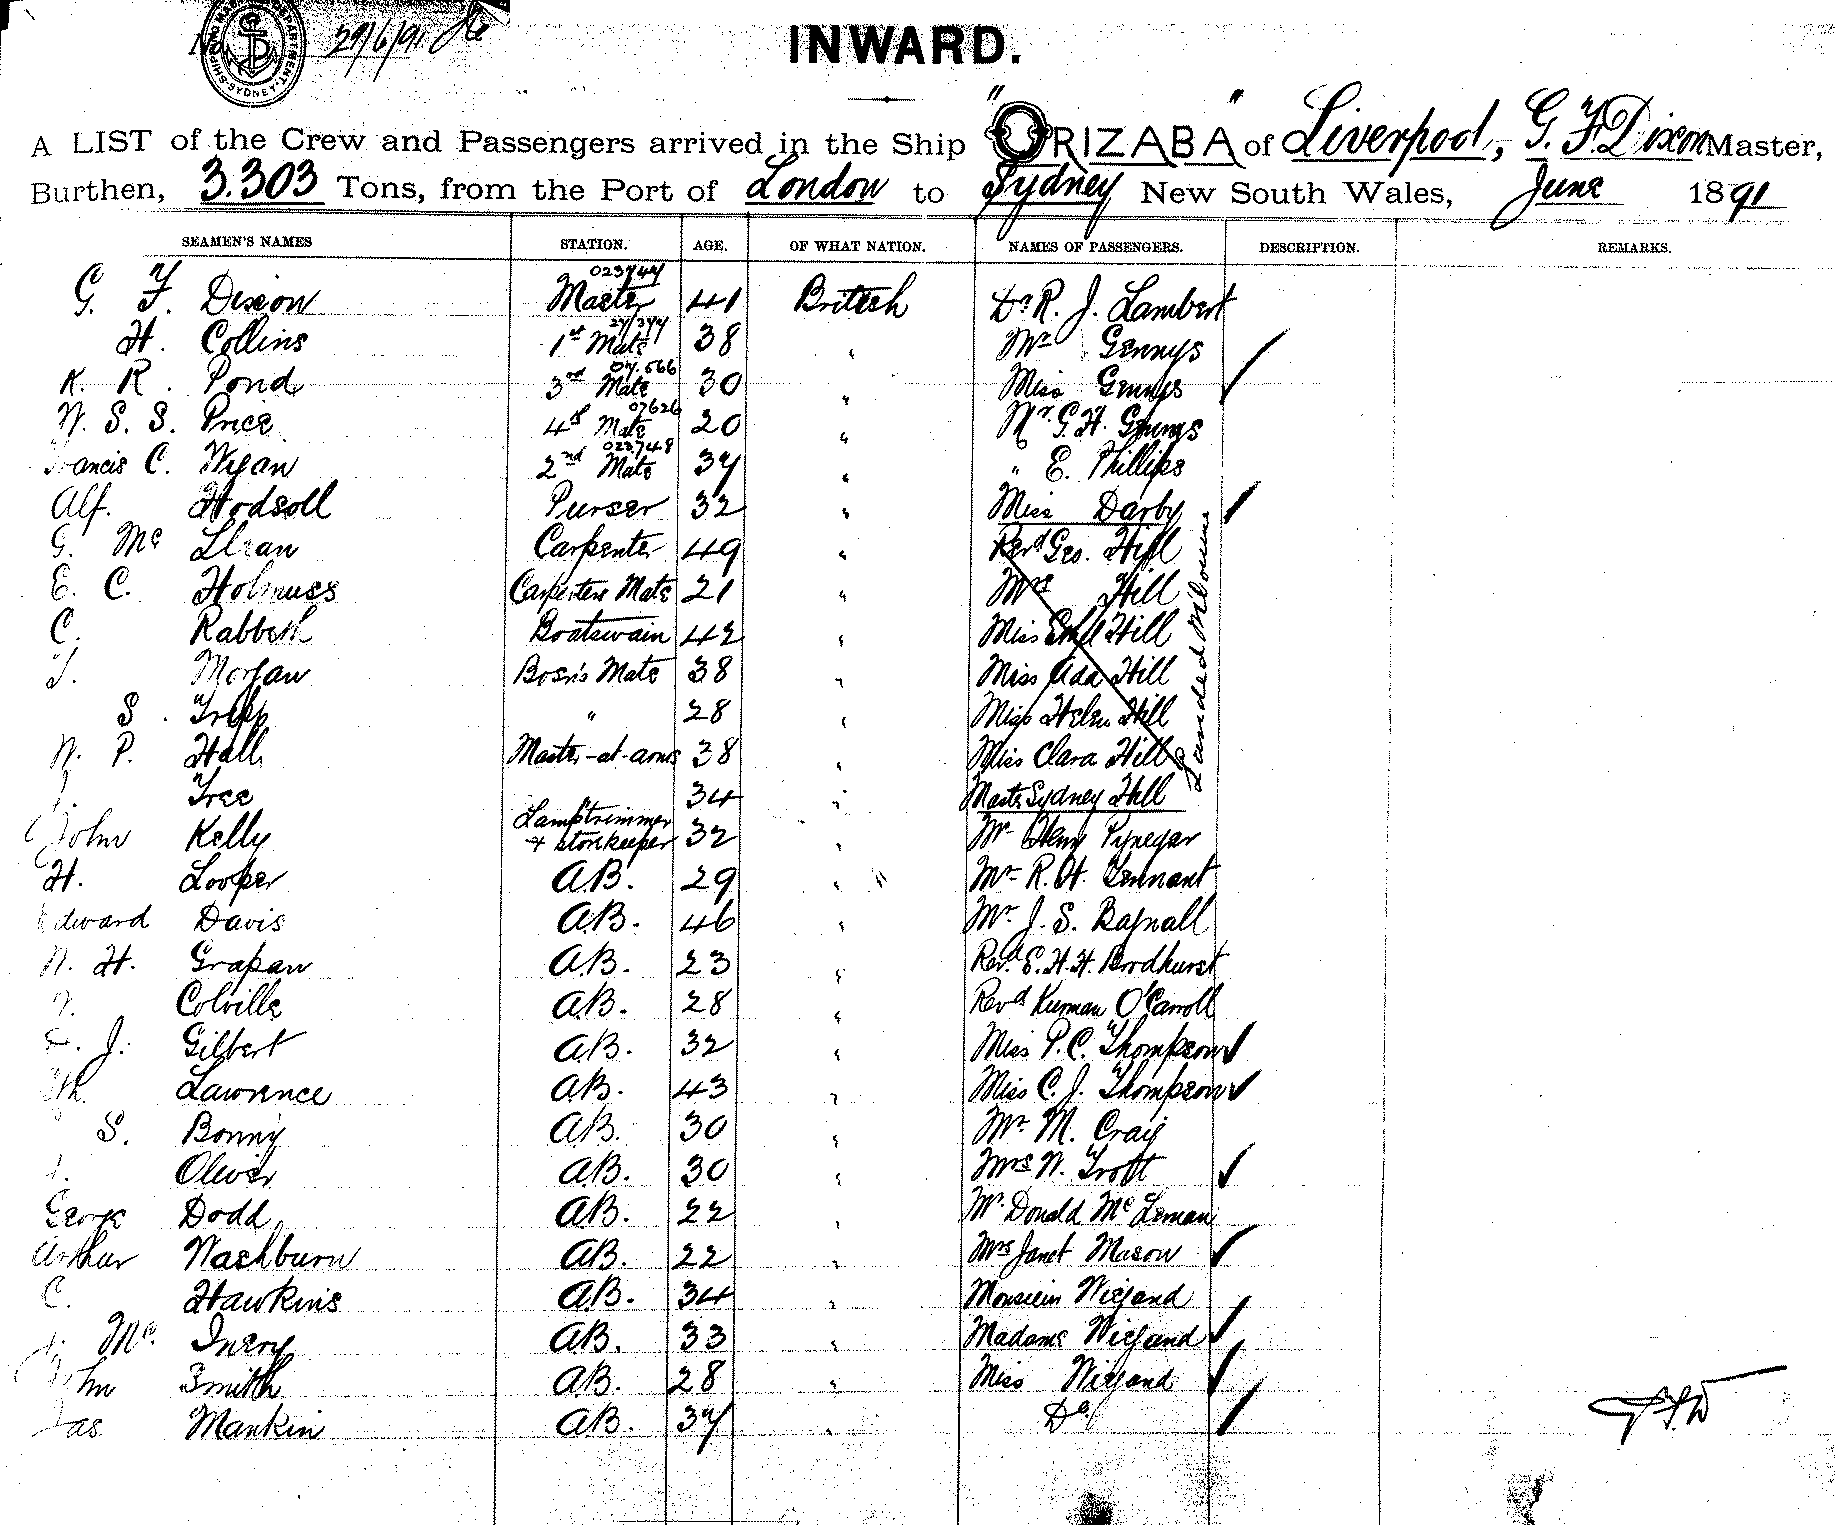 No 29/6/91
SHIPPING MASTER'S DEPARTMENT. SYDNEY
INWARD.
A LIST of the Crew and Passengers arrived in the Ship "ORIZABA" of Liverpool, G. F. Dixon Master,
Burthen, 3.303 Tons, from the Port of London to Sydney New South Wales, June 1891
SEAMEN'S NAMES STATION. AGE. OF WHAT NATION. NAMES OF PASSENGERS. DESCRIPTION. REMARKS.
G. F. Dixon 023744 Master 41 British Dr R. J. Lambert
H. Collins 1st Mate 38 " Mrs Gennys
K. R. Pond 3rd Mate 30 " Miss Gennys
W. S. S. Price 07626 4th Mate 20 " Mr G. H. Gennys
Francis C. Wyan 023748 2nd Mate 37 " " E. Phillips
Alf. Hodsoll Purser 32 " Miss Darby
G. Mc Llean Carpenter 49 " Revd Geo. Hill
E. C. Holmuss Carpenters Mate 21 " Mrs Hill
C. Rabbeth Boatswain 42 " Miss Ethel Hill
T. Morgan Bosn's Mate 38 " Miss Ada Hill
S. Tripp " 28 " Miss Helen Hill
W. P. Hall Master-at-arms 38 " Miss Clara Hill
Tree 34 " Master Sydney Hill
Landed Melbourne
John Kelly Lamptrimmer + storekeeper 32 " Mr Henry Pynegar
H. Looper A.B. 29 " Mr R. H. Tennant
Edward Davis A.B. 46 " Mr J. S. Bagnall
W. H. Grapan A.B. 23 " Revd E. H. H. Brodhurst
Colville A.B. 28 " Revd Kiernan O'Carroll
J. Gilbert A.B. 32 " Miss P. C. Thompson
Lawrence A.B. 43 " Miss C. J. Thompson
S. Bonny A.B. 30 " Mr M. Craig
Oliver A.B. 30 " Mrs W. Trott
George Dodd A.B. 22 " Mr Donald Mc Lennan
Arthur Washburn A.B. 22 " Mrs Janet Mason
C. Hawkins A.B. 34 " Monsieur Wiegand
J. Mc Inery A.B. 33 " Madame Wiegand
John Smith A.B. 28 " Miss Wiegand
Jas Mankin A.B. 37 " Do